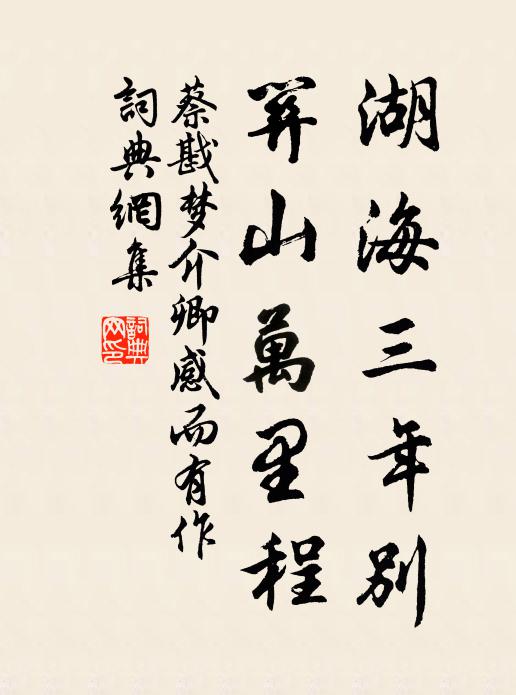 湖海三年别
關山萬里程
蔡戡梦介卿感而有作
詞典網集
詞典
网印